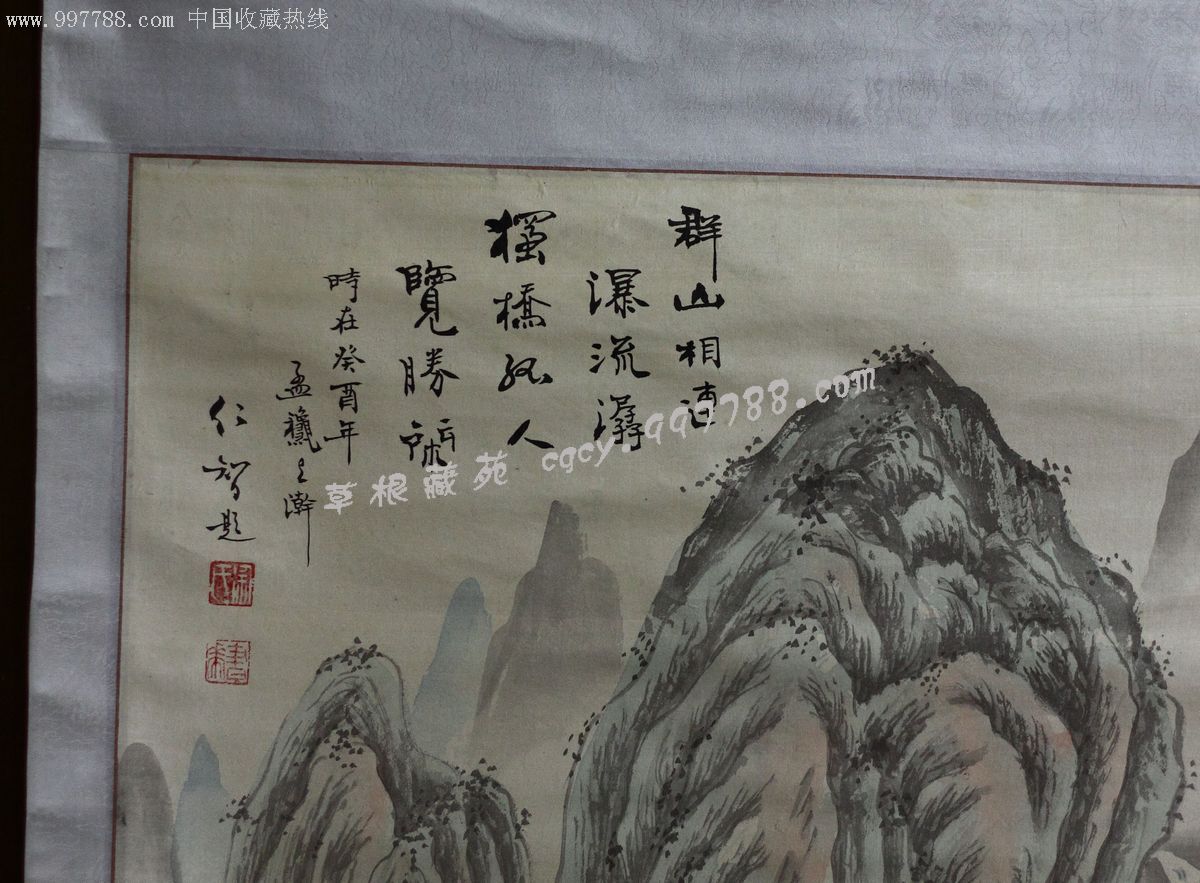 www.997788.com 中国收藏热线
群山相連
瀑流潺
獨橋孤人
覽勝
時在癸酉年
孟
仁智題
草根藏苑 cgcy.997788.com